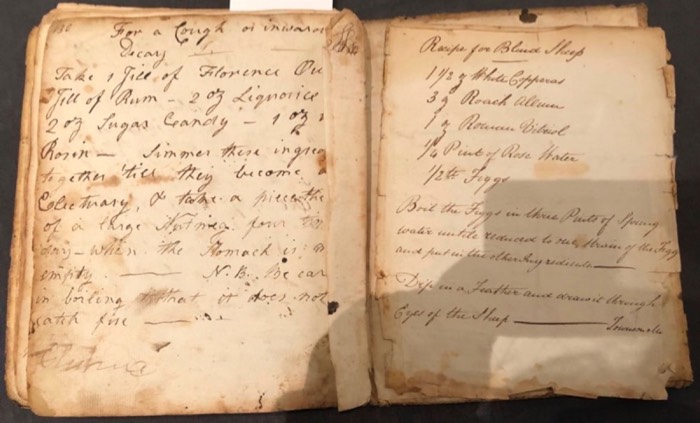 For a Cough or inward
Decay
Take 1 Jill of Florence
Jill of Rum - 2 oz Liquorice
2 oz Sugar Candy - 1 oz
Rosin - Simmer these
together 'till they become a
Electuary, & take a piece the
of a large Nutmeg four
day - when the Stomach is
empty. N.B. Be
in boiling that it does not
catch fire
Recipe for Blind Sheep
1 1/2 oz White Copperas
3 oz Roach Allum
1 oz Roman Vitriol
1/4 Pint of Rose Water
1/2 lb Figgs
Boil the Figgs in three Pints of Spring
water until reduced to one, Strain off the Figgs
and put in the other Ingredients
Dip in a Feather and draw it through
Eyes of the Sheep